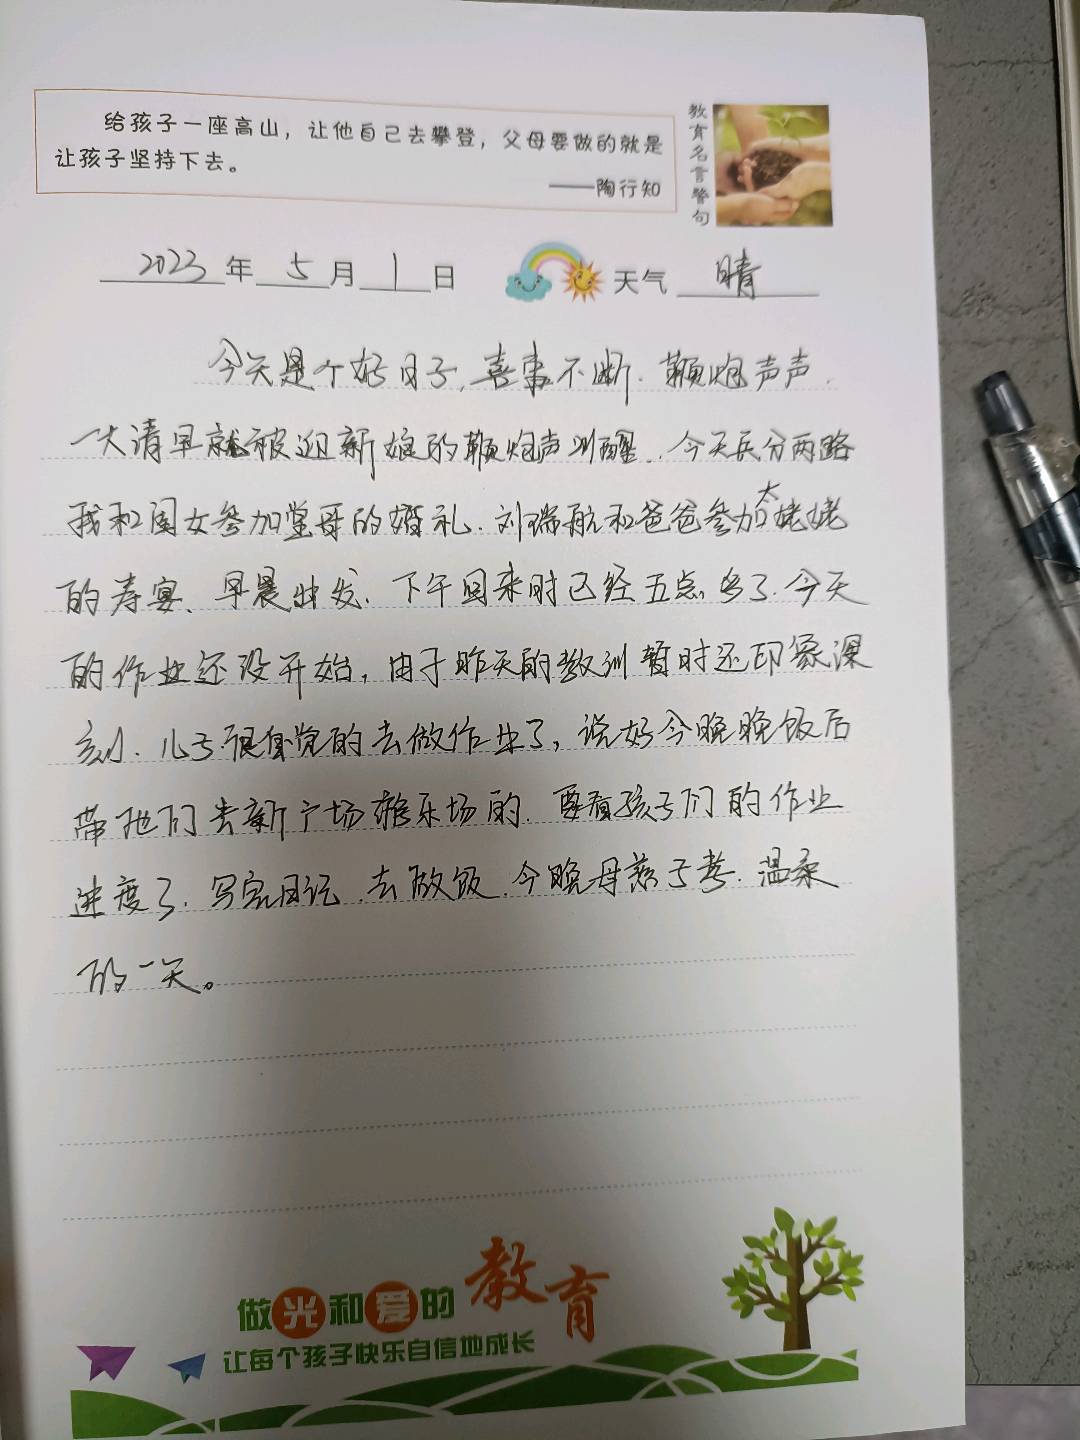 给孩子一座高山，让他自己去攀登，父母要做的就是
让孩子坚持下去。
——陶行知
教育名言警句
2023年5月1日 天气 晴
今天是个好日子，喜事不断．鞭炮声声．
一大清早就被迎新娘的鞭炮声叫醒．今天兵分两路
我和闺女参加堂哥的婚礼．刘瑞航和爸爸参加大姥姥
的寿宴、早晨出发．下午回来时已经五点多了．今天
的作业还没开始，由于昨天的教训暂时还印象深
刻．儿子很自觉的去做作业了，说好今晚晚饭后
带他们去新广场游乐场的．要看孩子们的作业
进度了．写完日记．去做饭．今晚母慈子孝．温柔
的一天。
做光和爱的教育
让每个孩子快乐自信地成长